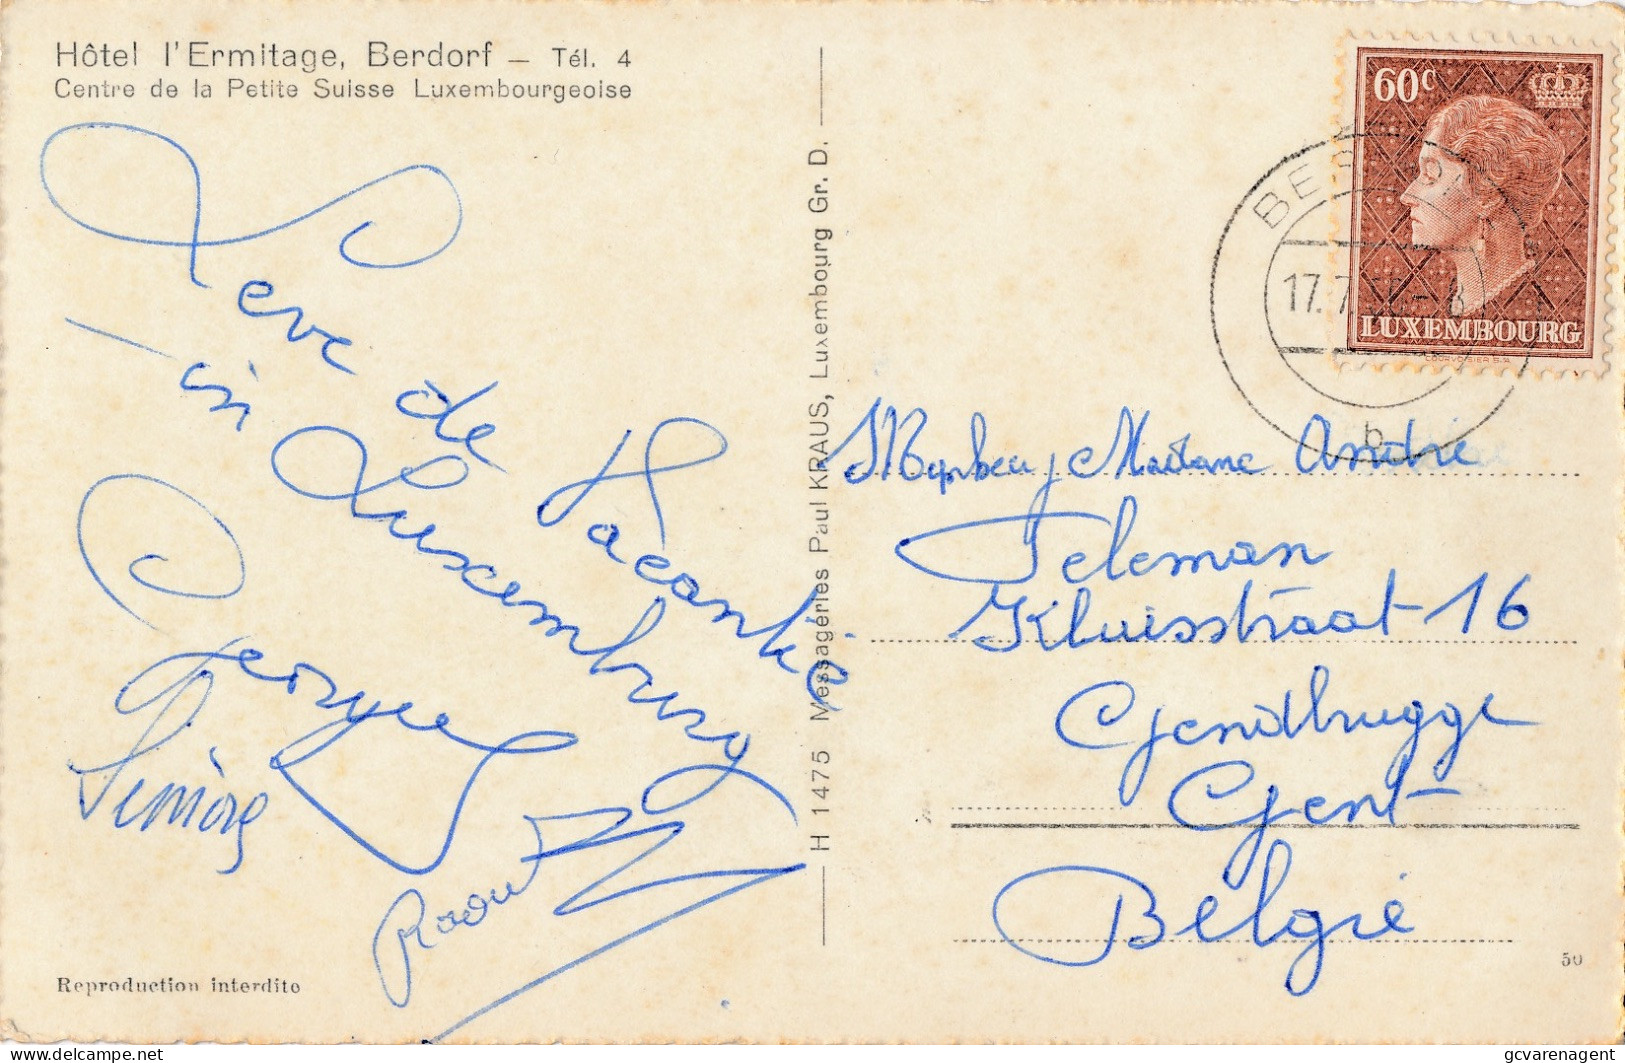 Hôtel l'Ermitage, Berdorf — Tél. 4
Centre de la Petite Suisse Luxembourgeoise
Leve de Vacantie
in Luxemburg
Georges
Simone
Raoul
Reproduction interdite
H 1475 Messageries Paul KRAUS, Luxembourg Gr. D.
60c
LUXEMBOURG
17.7
8
b
Madame André
Teleman
Kluisstraat 16
Gendbrugge
Gent
België
50
delcampe.net
gcvarenagent